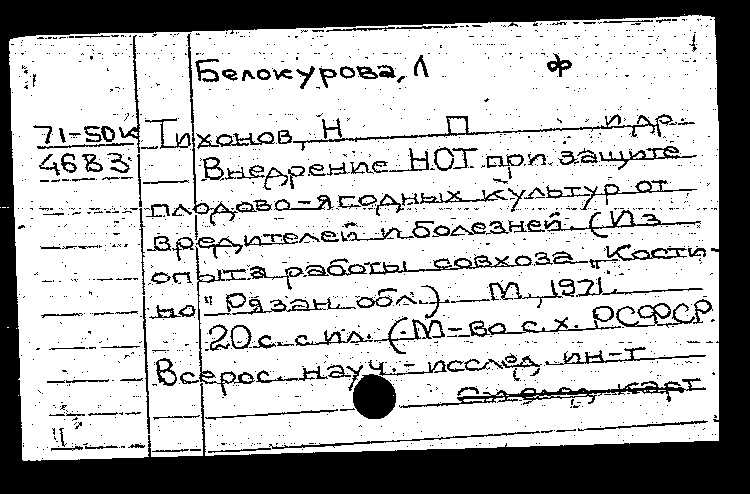 Белокурова, Л ф
71-50к Тихонов, Н. П. и др.
4683 Внедрение НОТ при защите
плодово-ягодных культур от
вредителей и болезней. (Из
опыта работы совхоза „Кости-
но" Рязан. обл.). М., 1971.
20 с. с ил. (М-во с. х. РСФСР.
Всерос. науч.-исслед. ин-т
См след карт